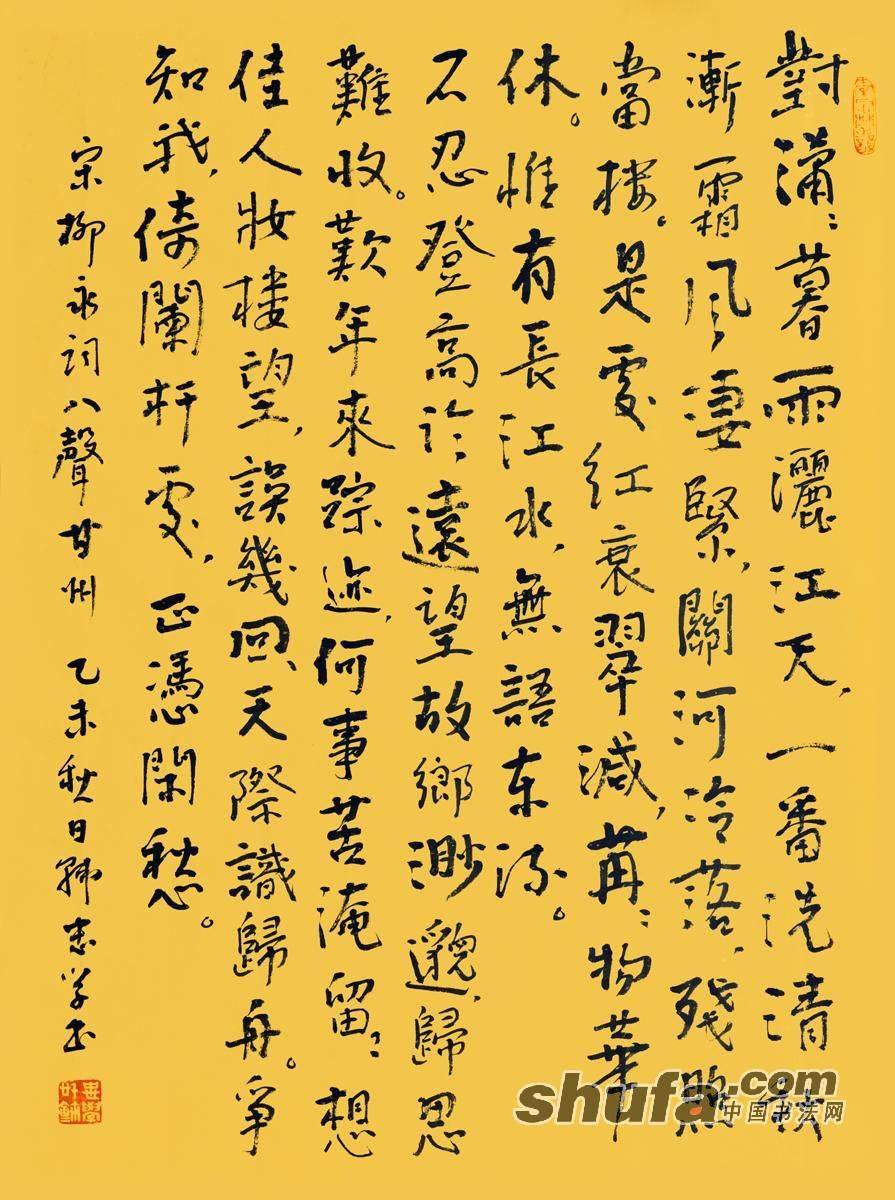 對瀟:暮雨灑江天,一番洗清秋
漸霜風淒緊,關河冷落,殘照
當楼。是處紅衰翠减,苒:物華
休。惟有長江水,無語东流。
不忍登高临遠望故鄉渺邈,歸思
難收。歎年來踪迹,何事苦淹留:想
佳人妝楼望,誤幾回、天際識歸舟。爭
知我,倚闌杆處,正憑閑愁。
宋柳永詞八聲甘州 乙未秋日韩忠学书
shufa.com
中国书法网